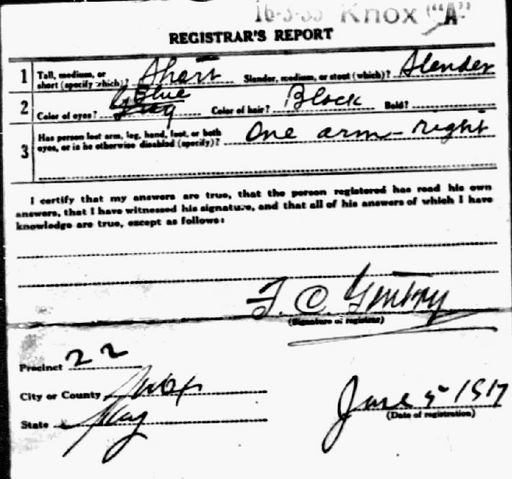 16-3-33 Knox "A"
REGISTRAR'S REPORT
1 Tall, medium, or short (specify which)? Short Slender, medium, or stout (which)? Slender
2 Color of eyes? Blue Gray Color of hair? Black Bald?
3 Has person lost arm, leg, hand, foot, or both eyes, or is he otherwise disabled (specify)? One arm - right
I certify that my answers are true, that the person registered has read his own
answers, that I have witnessed his signature, and that all of his answers of which I have
knowledge are true, except as follows:
F. C. Gentry
(Signature of registrar)
Precinct 22
City or County Knox
State Ky
June 5 1917
(Date of registration)